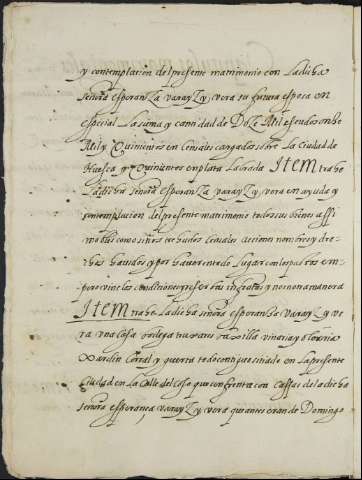 y contemplacion del presente matrimonio con la dicha
señora esperanza varayz y vera su futura esposa en
especial la suma y cantidad de doze mil escudos onze
mil y quinientos en censales cargados sobre la Ciudad de
Huesca y quinientos en plata labrada Item trahe
la dicha señora esperanza varayz y vera en ayuda y
contemplacion del presente matrimonio todos sus bienes assi
mobles como sitios censales nombres y dre
chos havidos y por haver en todo lugar con los
vinclos condiciones y no en otra manera
Item trahe la dicha señora esperanza varayz y ve
ra una casa bodega vinaria y olearia
Jardin corral y todo contiguo sitiado en la presente
Ciudad en la calle del coso que confrenta con cassas de la dicha
señora esperanza varayz y vera que antes eran de Domingo